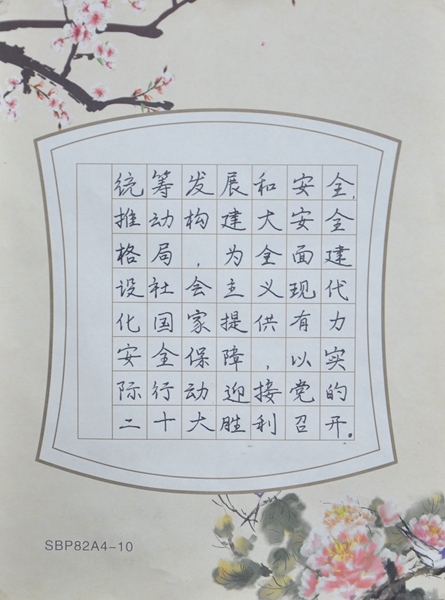 统筹发展和安全,
推动构建大安全
格局,为全面建
设社会主义现代
化国家提供有力
安全保障,以实
际行动迎接党的
二十大胜利召开。
SBP82A4-10